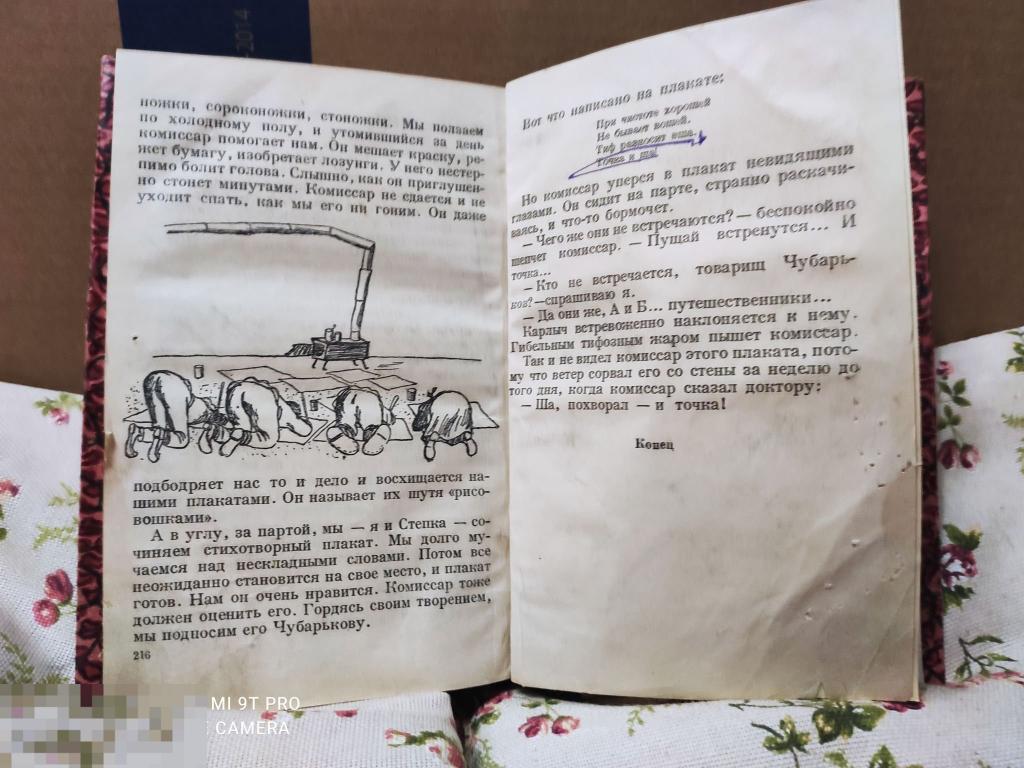 -2014
ножки, сороконожки, стоножки. Мы ползаем
по холодному полу, и утомившийся за день
комиссар помогает нам. Он мешает краску, ре-
жет бумагу, изобретает лозунги. У него нестер-
пимо болит голова. Слышно, как он приглушен-
но стонет минутами. Комиссар не сдается и не
уходит спать, как мы его ни гоним. Он даже
подбодряет нас то и дело и восхищается на-
шими плакатами. Он называет их шутя «рисо-
вошками».
А в углу, за партой, мы — я и Степка — со-
чиняем стихотворный плакат. Мы долго му-
чаемся над нескладными словами. Потом все
неожиданно становится на свое место, и плакат
готов. Нам он очень нравится. Комиссар тоже
должен оценить его. Гордясь своим творением,
мы подносим его Чубарькову.
216
Вот что написано на плакате:
При чистоте хорошей
Не бывает вошей.
Тиф разносит вша.
Точка и ша!
Но комиссар уперся в плакат невидящими
глазами. Он сидит на парте, странно раскачи-
ваясь, и что-то бормочет.
— Чего же они не встречаются? — беспокойно
шепчет комиссар. — Пущай встренутся... И
точка...
— Кто не встречается, товарищ Чубарь-
ков? — спрашиваю я.
— Да они же, А и Б... путешественники...
Карлыч встревоженно наклоняется к нему.
Гибельным тифозным жаром пышет комиссар.
Так и не видел комиссар этого плаката, пото-
му что ветер сорвал его со стены за неделю до
того дня, когда комиссар сказал доктору:
— Ша, похворал — и точка!
Конец
MI 9T PRO
CAMERA